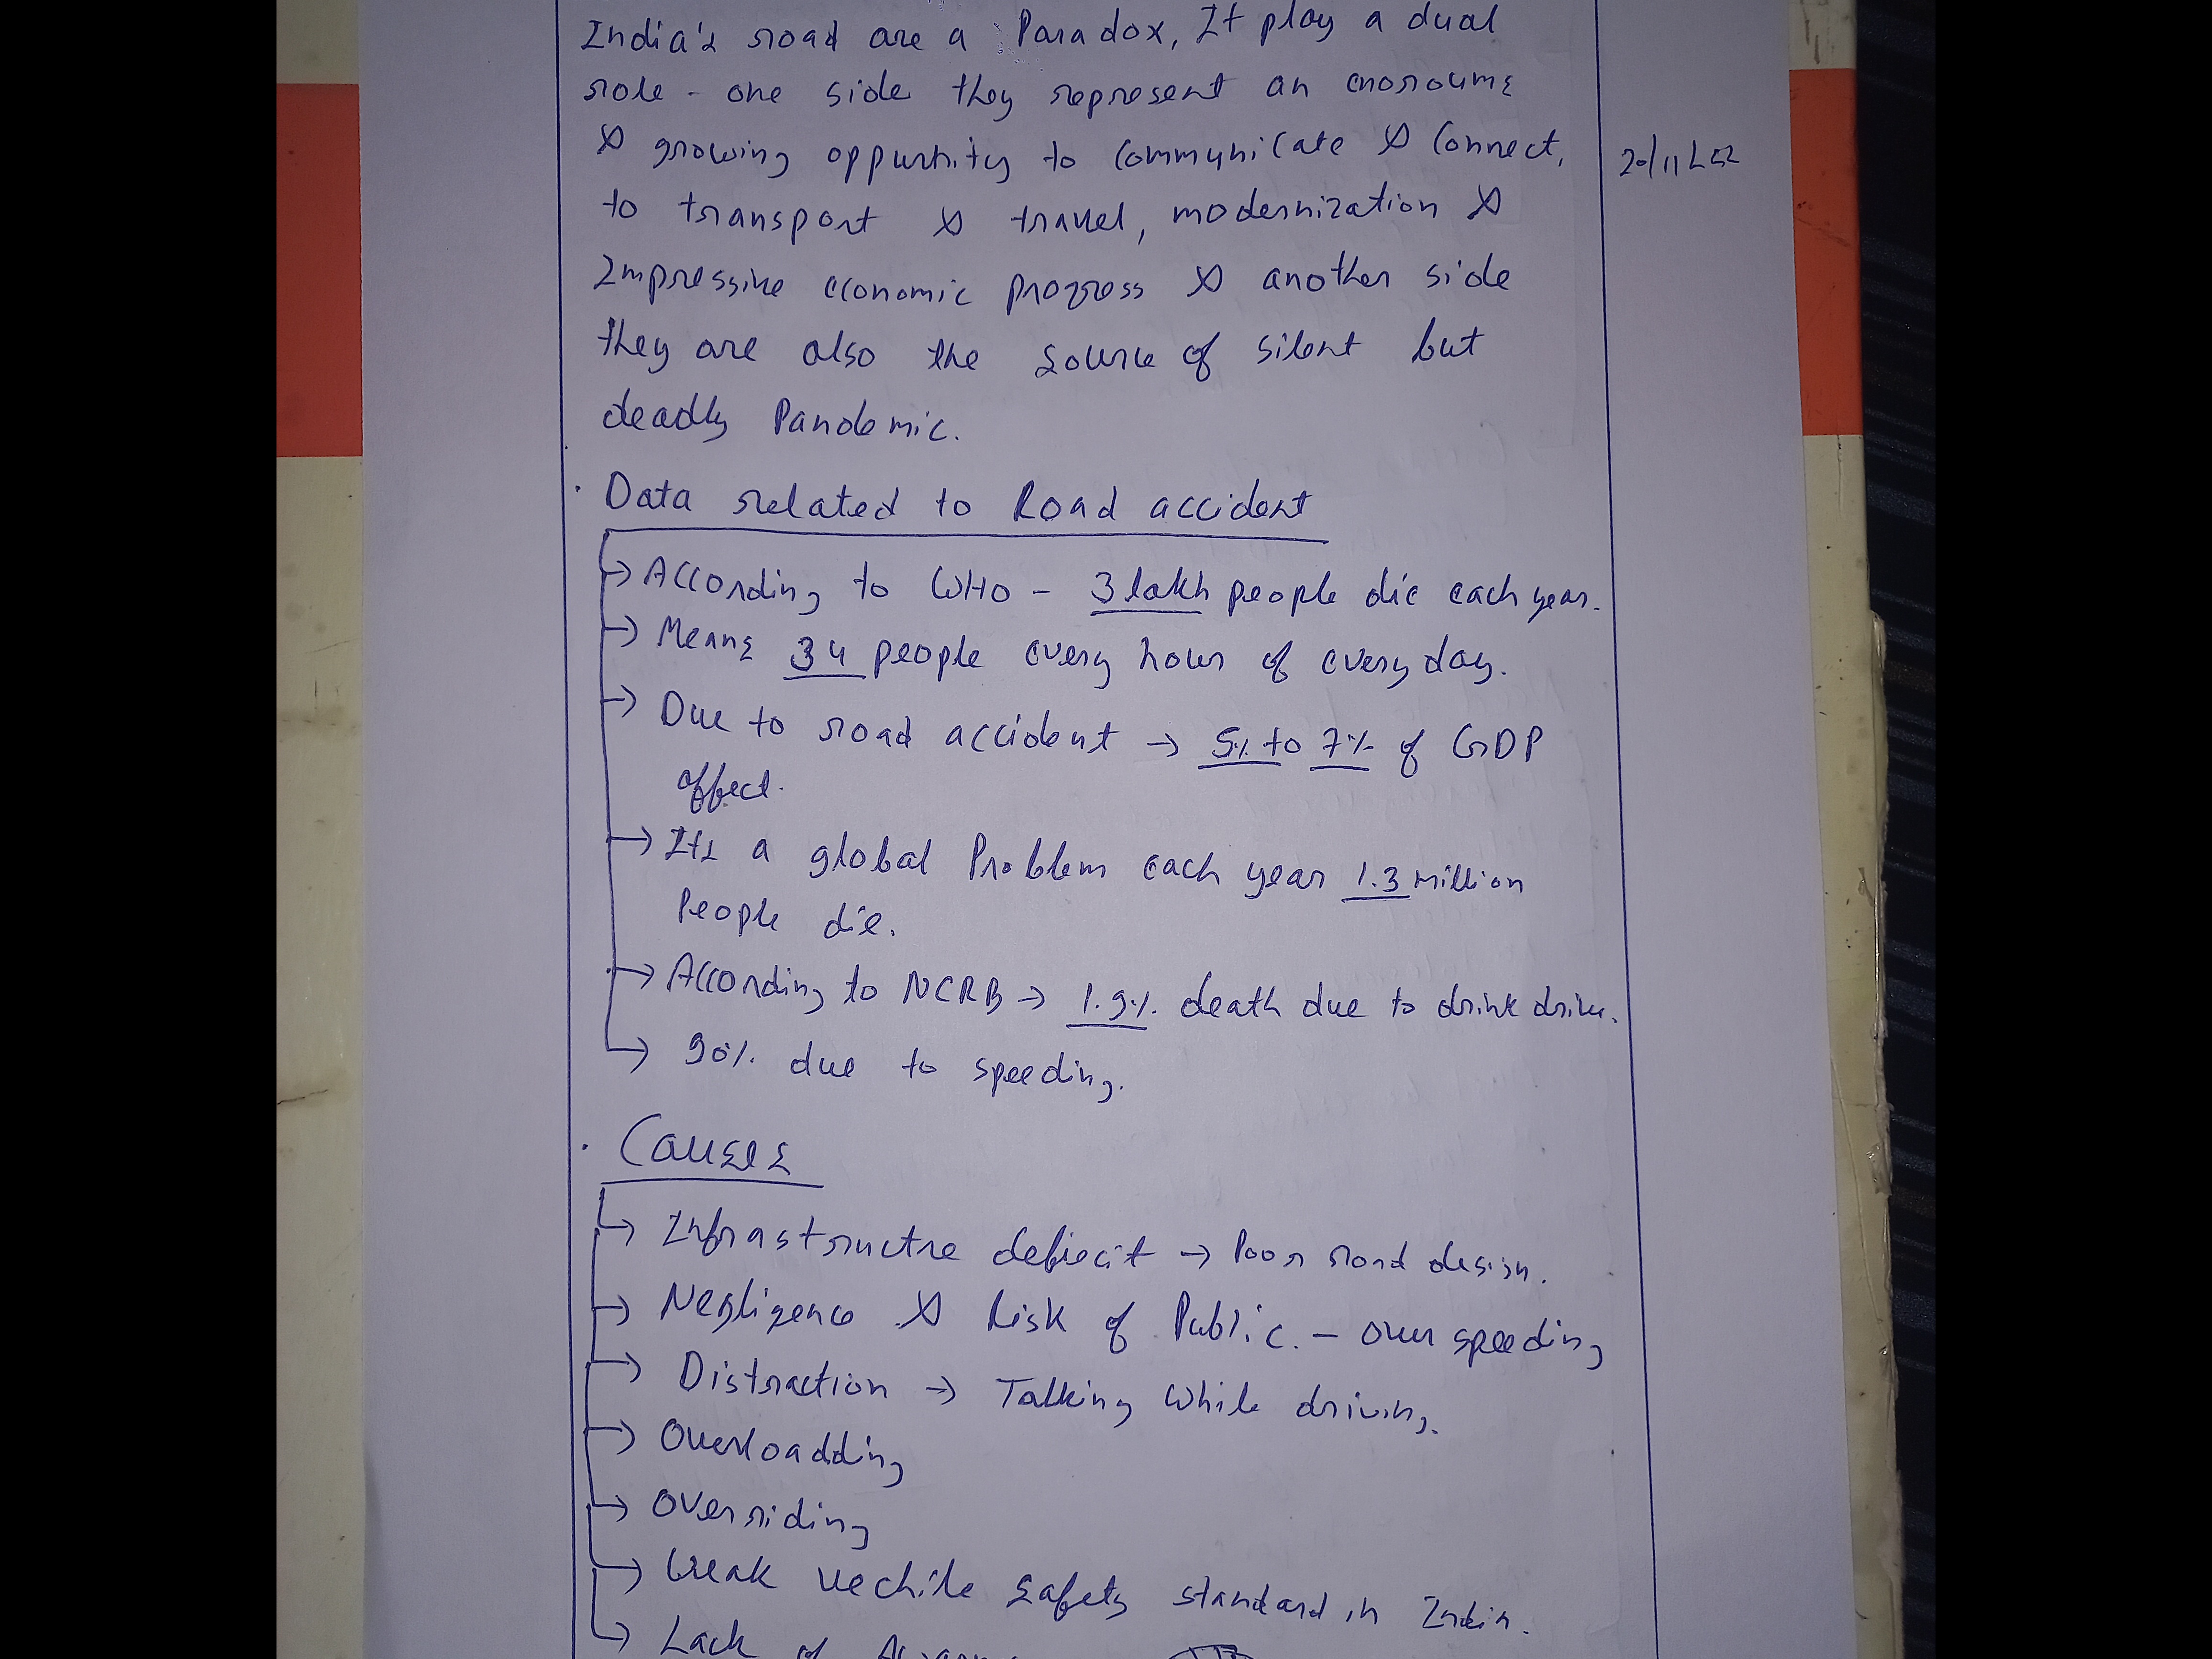 India's road are a Paradox, It play a dual
role - one side they represent an enoroums
& growing oppurnity to communicate & Connect,
to transport & travel, modernization &
Impressive economic progress & another side
they are also the source of silent but
deadly Pandemic.
· Data related to Road accident
→ According to WHO - 3 lakh people die each year.
→ Means 34 people every hour of every day.
→ Due to road accident → 5% to 7% of GDP
effect.
→ Its a global Problem each year 1.3 million
People die.
→ According to NCRB → 1.9% death due to drink drive.
→ 90% due to speeding.
· Causes
→ Infrastructre defiecit → Poor road design.
→ Negligence & Risk of Public. - over speeding
→ Distraction → Talking while driving.
→ Overloadding
→ Overriding
→ Weak vechile safety standard in India.
→ Lack of